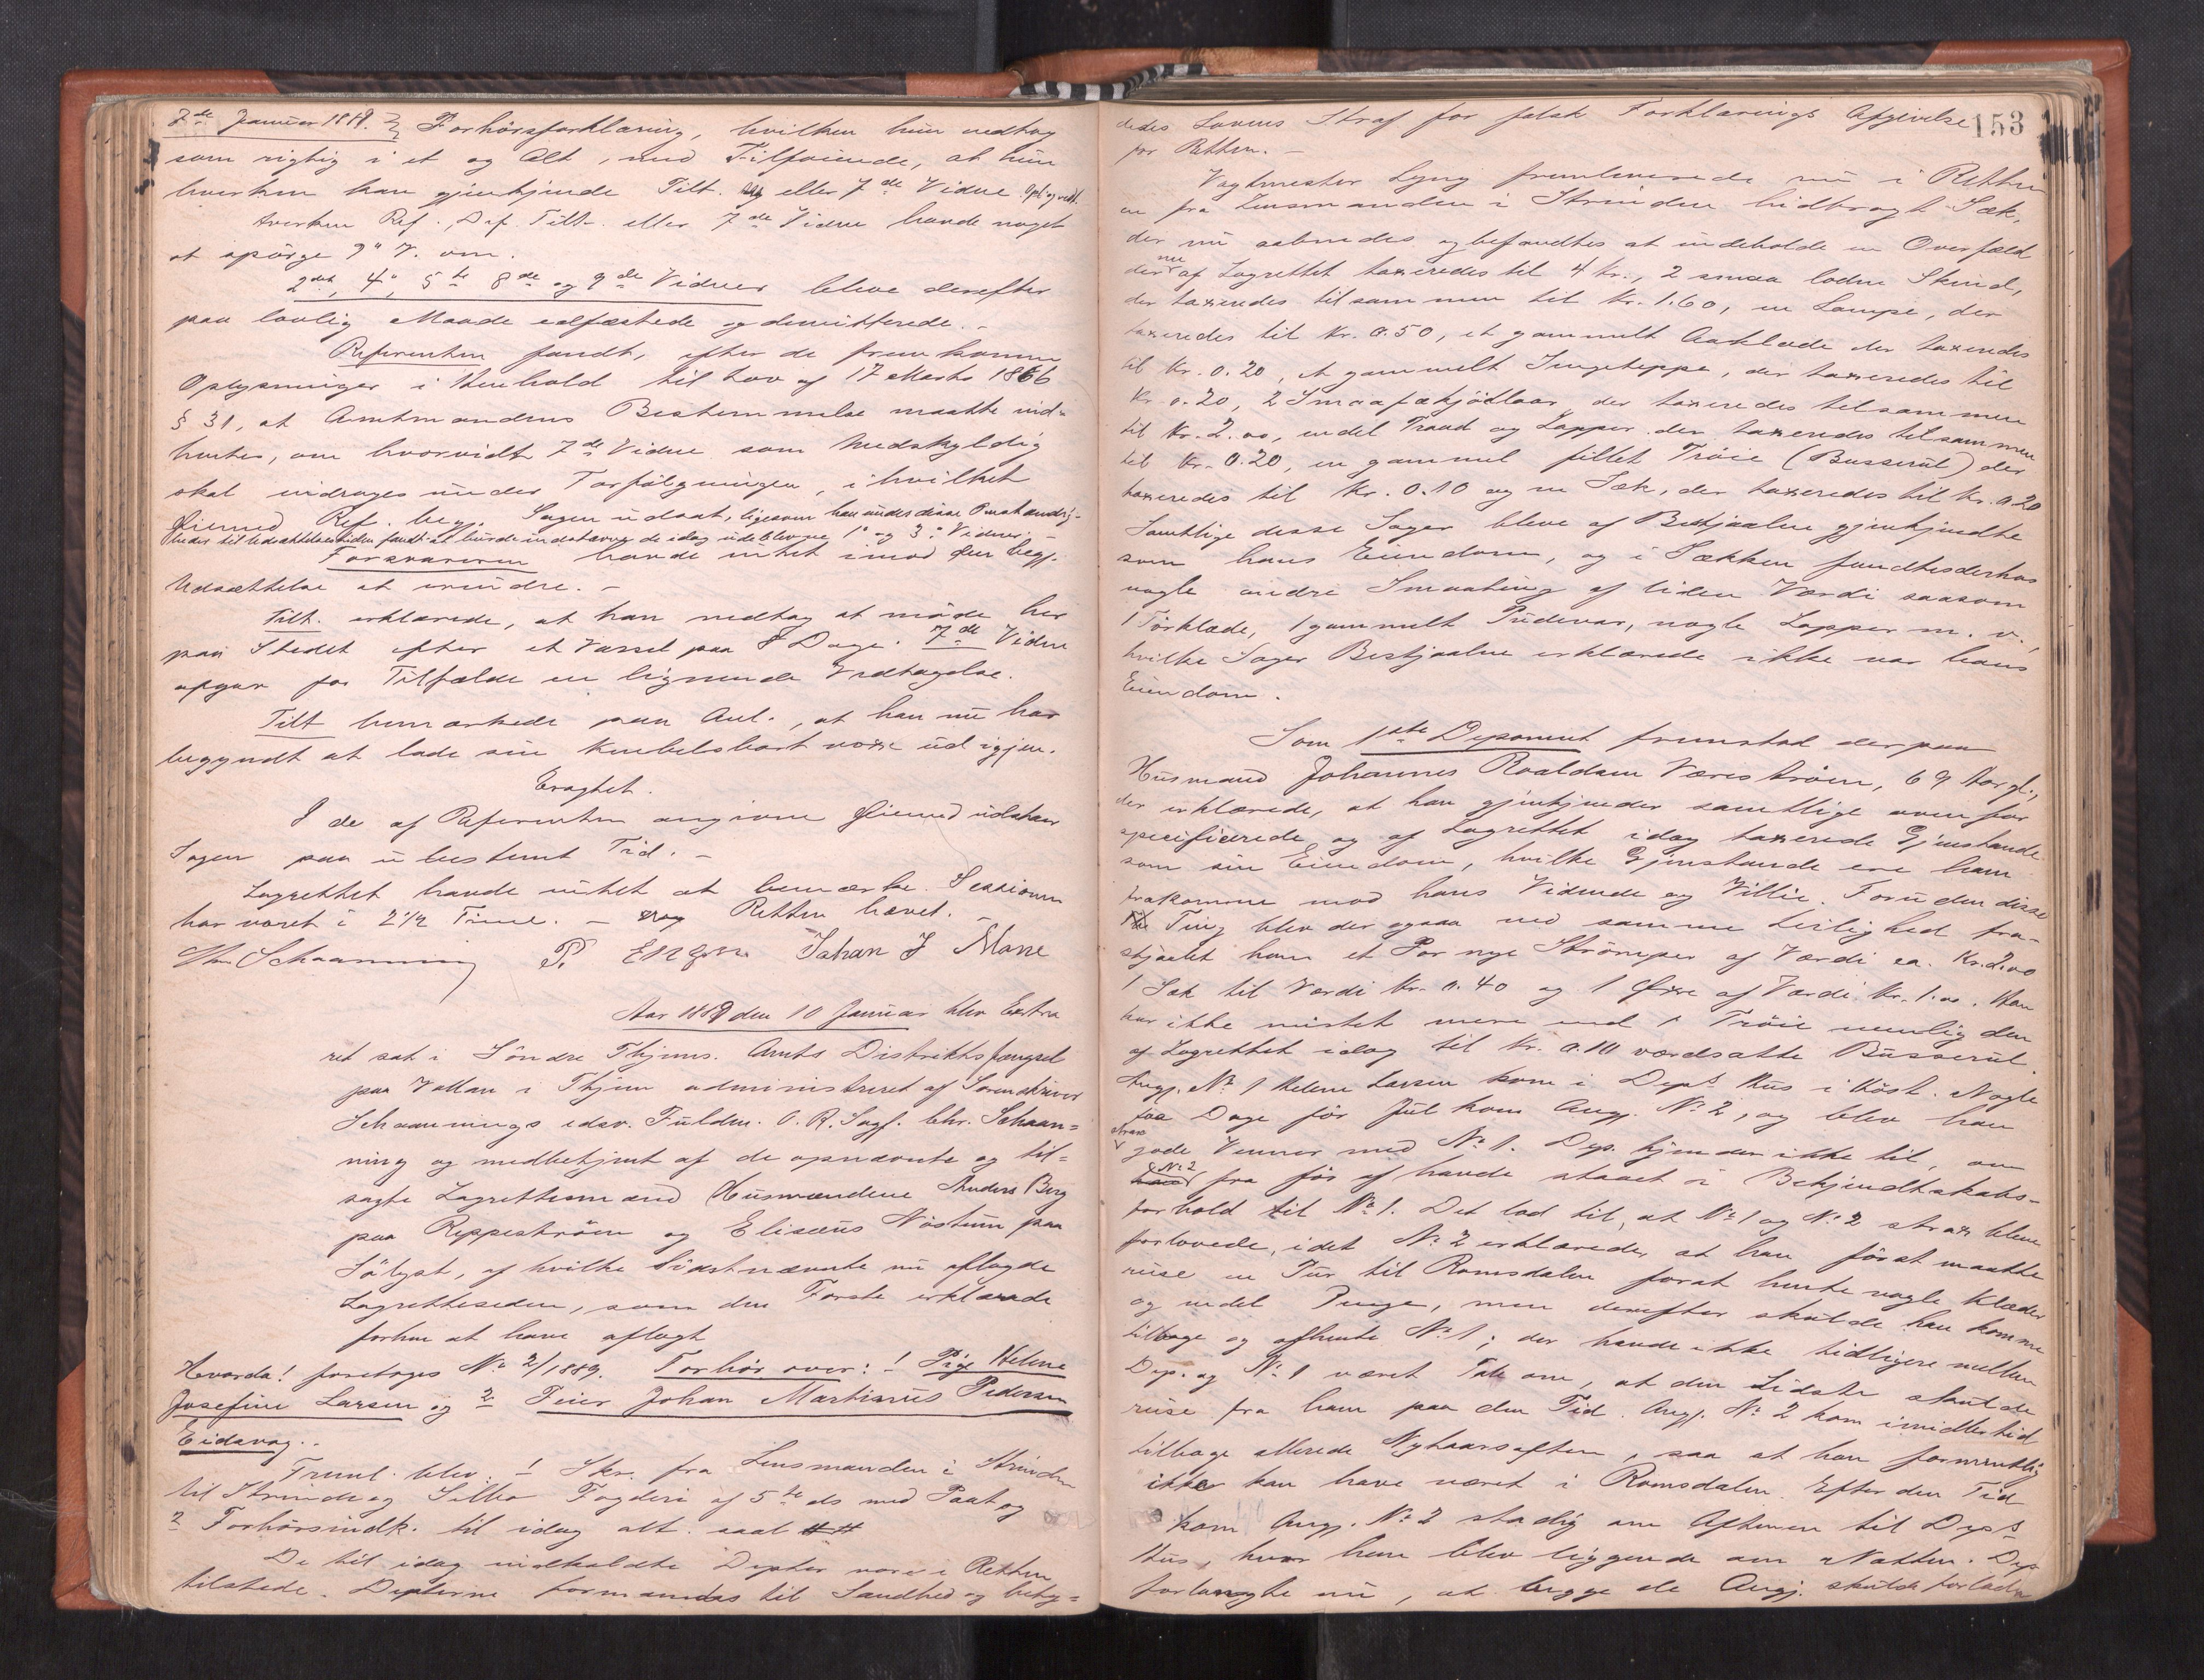 7de Januar 1889. Forhørsforklaring, hvilken hun vedtog
som rigtig i et og Alt, med Tilføiende, at hun
hverken kan gjenkjende Tilt. eller 7de Vidne. Opl. og vedt.
Hverken Ref., Def., Tilt. eller 7de Vidne havde noget
at spørge 9de V. om.
2det, 4de, 5te 8de og 9de Vidner bleve derefter
paa lovlig Maade edfæstede og demitterede. –
Referenten fandt, efter de fremkomne
Oplysninger i Henhold til Lov af 17 Marts 1866
§ 31, at Amtmandens Bestemmelse maatte ind-
hentes, om hvorvidt 7de Vidne som medskyldig
skal inddrages under Forfølgningen, i hvilket
Øiemed Ref. beg. Sagen udsat, ligesom han under disse Omstændig-
heder til Udsættelsen tiden fandt at burde indstævne de idag udeblevne 1ste og 3die Vidner. –
Forsvareren havde intet imod den begj.
Udsættelse at erindre. –
Tilt. erklærede, at han vedtog at møde her
paa Stedet efter et Varsel paa 8 Dage. 7de Vidne
afgav for Tilfælde en lignende Vedtagelse.
Tilt bemærkede paa Anl., at han nu har
begyndt at lade sin Knebelsbart voxe ud igjen.
Eragtet.
I de af Referenten angivne Øiemed udstaar
Sagen paa ubestemt Tid. –
Lagrettet havde intet at bemærke. Sessionen
har varet i 2½ Time. – Retten hævet. –
Schaanning P. Engen Johan J Moxe
Aar 1889 den 10 Januar blev Extra
ret sat i Søndre Thjems. Amts Distriktsfængsel
paa Vollan i Thjem administreret af Sorenskriver
Schaannings edsv. Fuldm. O. R. Sagf. Chr. Schaan-
ning og medbetjent af de opnævnte og til-
sagte Lagrettesmænd Husmændene Anders Berg
paa Reppestrøen og Elisæus Nøstum paa
Sølyst, af hvilke Sidstnævnte nu aflagde
Lagretteseden, som den Første erklærede
forhen at have aflagt
Hvorda! foretoges No 2/1889. Forhør over: 1 Pige Helene
Josefine Larsen og 2 Feier Johan Martinus Pedersen
Eidsvag..
Freml. blev: 1 Skr. fra Lensmanden i Strinden
til Strinde og Selbo Fogderi af 5te ds med Paat og
2 Forhørsindk. til idag alt. saal.
De til idag indkaldte Depter vare i Retten
tilstede. Depterne formanedes til Sandhed og bety-
153
dedes Lovens Straf for falsk Forklarings Afgivelse
for Retten. –
Vagtmester Lyng fremleverede nu i Retten
en fra Lensmanden i Strinden hidbragt Sæk,
der nu aabnedes og befandtes at indeholde en Overfæld
der nu af Lagrettet taxeredes til 4 Kr., 2 smaa lodne Skind,
der taxeredes tilsammen til Kr. 1.60, en Lampe, der
taxeredes til Kr. 0.50, et gammelt Aaklæde der taxeredes
til Kr. 0.20, et gammelt Sengeteppe, der taxeredes til
Kr 0.20, 2 Smaafækjødlaar der taxeredes tilsammen
til Kr. 2.00, endel Traad og Lapper der taxeredes tilsammen
til Kr. 0.20, en gammel fillet Trøie (Busserul) der
taxeredes til Kr. 0.10 og en Sæk, der taxeredes til Kr. 0.20
Samtlige disse Sager bleve af Bestjaalne gjenkjendte
som hans Eiendom, og i Sækken fandtes derhos
nogle andre Smaating af liden Værdi saasom
1 Tørklæde, 1 gammelt Pudevar, nogle Lapper m. v.,
hvilke Sager Bestjaalne erklærede ikke var hans
Eiendom.
Som 1ste Deponent fremstod derpaa
Husmand Johannes Roaldsen Væreströen, 69 Aar gl.,
der erklærede, at han gjenkjender samtlige ovenfor
specificerede og af Lagrettet idag taxerede Gjenstande
som sin Eiendom, hvilke Gjenstande ere ham
frakomne mod hans Vidende og Villie. Foruden disse
Ting blev der ogsaa ved samme Leilighed fra-
stjaalet ham et Par nye Strømper af Værdi ca. Kr. 2.00
1 Sæk til Værdi Kr. 0.40 og 1 Øxe af Værdi Kr. 1.00. Han
har ikke mistet mere end 1 Trøie nemlig den
af Lagrettet idag til Kr. 0.10 værdsatte Busserul.
Angj. No 1 Helene Larsen kom i Depts Hus i Høst. Nogle
faa Dage før Jul kom Angj. No 2, og blev han
strax gode Venner med No 1. Dep. kjender ikke til, om
No 2 fra før af havde staaet i Bekjendtskabs-
forhold til No 1. Det lod til, at No 1 og No 2 strax bleve
forlovede, idet No 2 erklærede, at han først maatte
reise en Tur til Romsdalen forat hente nogle Klæder
og endel Penge, men derefter skulde han komme
tilbage og afhente No 1; der havde ikke tidligere mellem
Dep. og No 1 været Tale om, at den Sidste skulde
reise fra ham paa den Tid. Angj. No 2 kom imidlertid
tilbage allerede Nytaarsaften, saa at han formentlig
ikke kan have været i Romsdalen. Efter den Tid
kom Angj. No 2 stadig om Aftenen til Depts
Hus, hvor han blev liggende om Natten. Dep
forlangte nu, at begge de Angj. skulde forlade